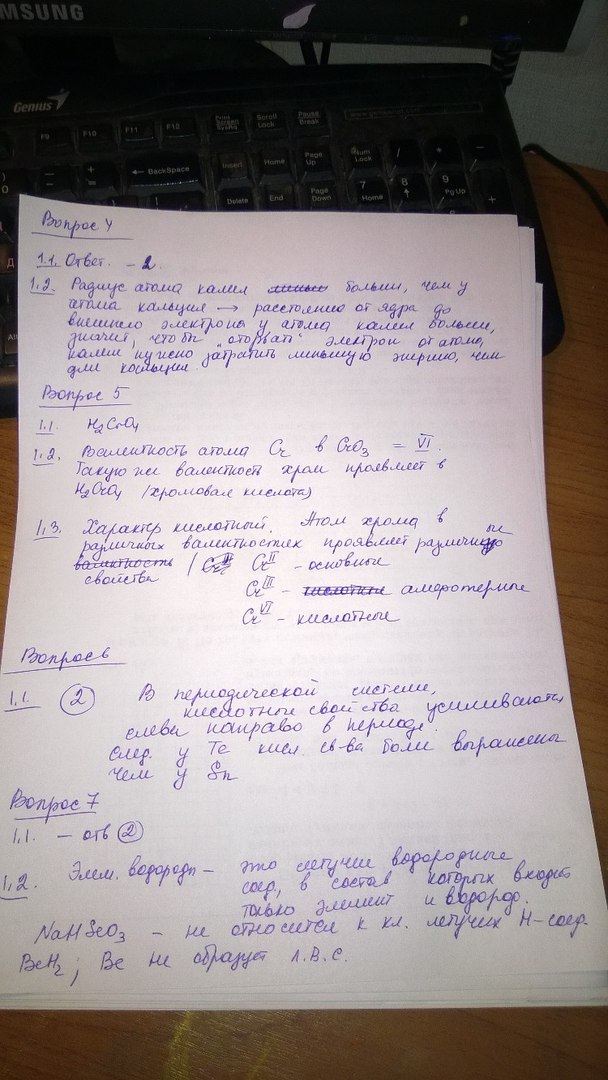 SAMSUNG
Genius
F9 F10 F11 F12 Print Screen SysRq Scroll Lock Pause Break
BackSpace Insert Home Page Up Num Lock / * -
Delete End Page Down 7 Home 8 9 Pg Up +
Вопрос 4
1.1. Ответ. – 2.
1.2. Радиус атома калия больше, чем у
атома кальция → расстояние от ядра до
внешнего электрона у атома калия больше,
значит, чтобы "оторвать" электрон от атома
калия нужно затратить меньшую энергию, чем
для кальция.
Вопрос 5
1.1. H2CrO4
1.2. Валентность атома Cr в CrO3 = VI.
Такую же валентность хром проявляет в
H2CrO4 (хромовая кислота)
1.3. Характер кислотный. Атом хрома в
различных валентностях проявляет различные
валентность свойства / Cr II – основные
Cr III – кислотные амфотерные
Cr VI – кислотные
Вопрос 6
1.1. 2 В периодической системе,
кислотные свойства усиливаются
слева направо в периоде.
след. у Te кисл. св-ва более выражены
чем у Sn
Вопрос 7
1.1. – отв 2
1.2. Элем. водородн – это летучие водородные
соед, в состав которых входит
только элемент и водород.
NaHSeO3 – не относится к кл. летучих H-соед.
BeH2; Be не образует л.В.С.